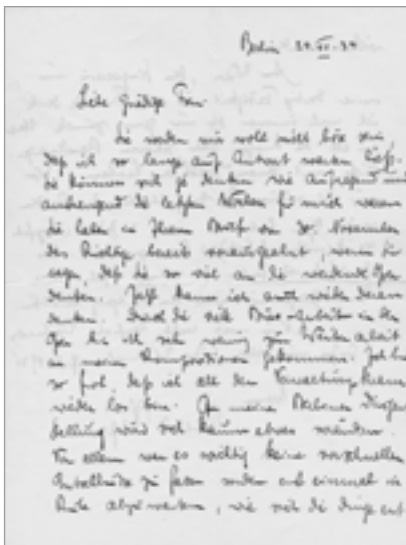 Berlin 27.XII.34
Liebe Gnädige Frau.
Sie werden mir wohl nicht böse sein,
daß ich so lange auf Antwort warten ließ.
Sie können sich ja denken wie aufregend und
anstrengend die letzten Wochen für mich waren
Sie haben in Ihrem Brief vom 30. November
das Richtige bereits vorausgeahnt, wenn Sie
sagen, daß Sie so viel an die werdende Oper
denken. Jetzt kann ich auch wieder daran
denken. Durch die viele Büro-Arbeit in der
Oper bin ich sehr wenig zur Weiterarbeit
an meinen Kompositionen gekommen. Ich bin
so froh, daß ich all den Verwaltungskram
wieder los bin. An meiner
wird sich kaum etwas ändern.
Vor allem war es wichtig keine vorschnellen
Entschlüsse zu fassen sondern erst einmal in
Ruhe abzuwarten, wie sich die Dinge ent-